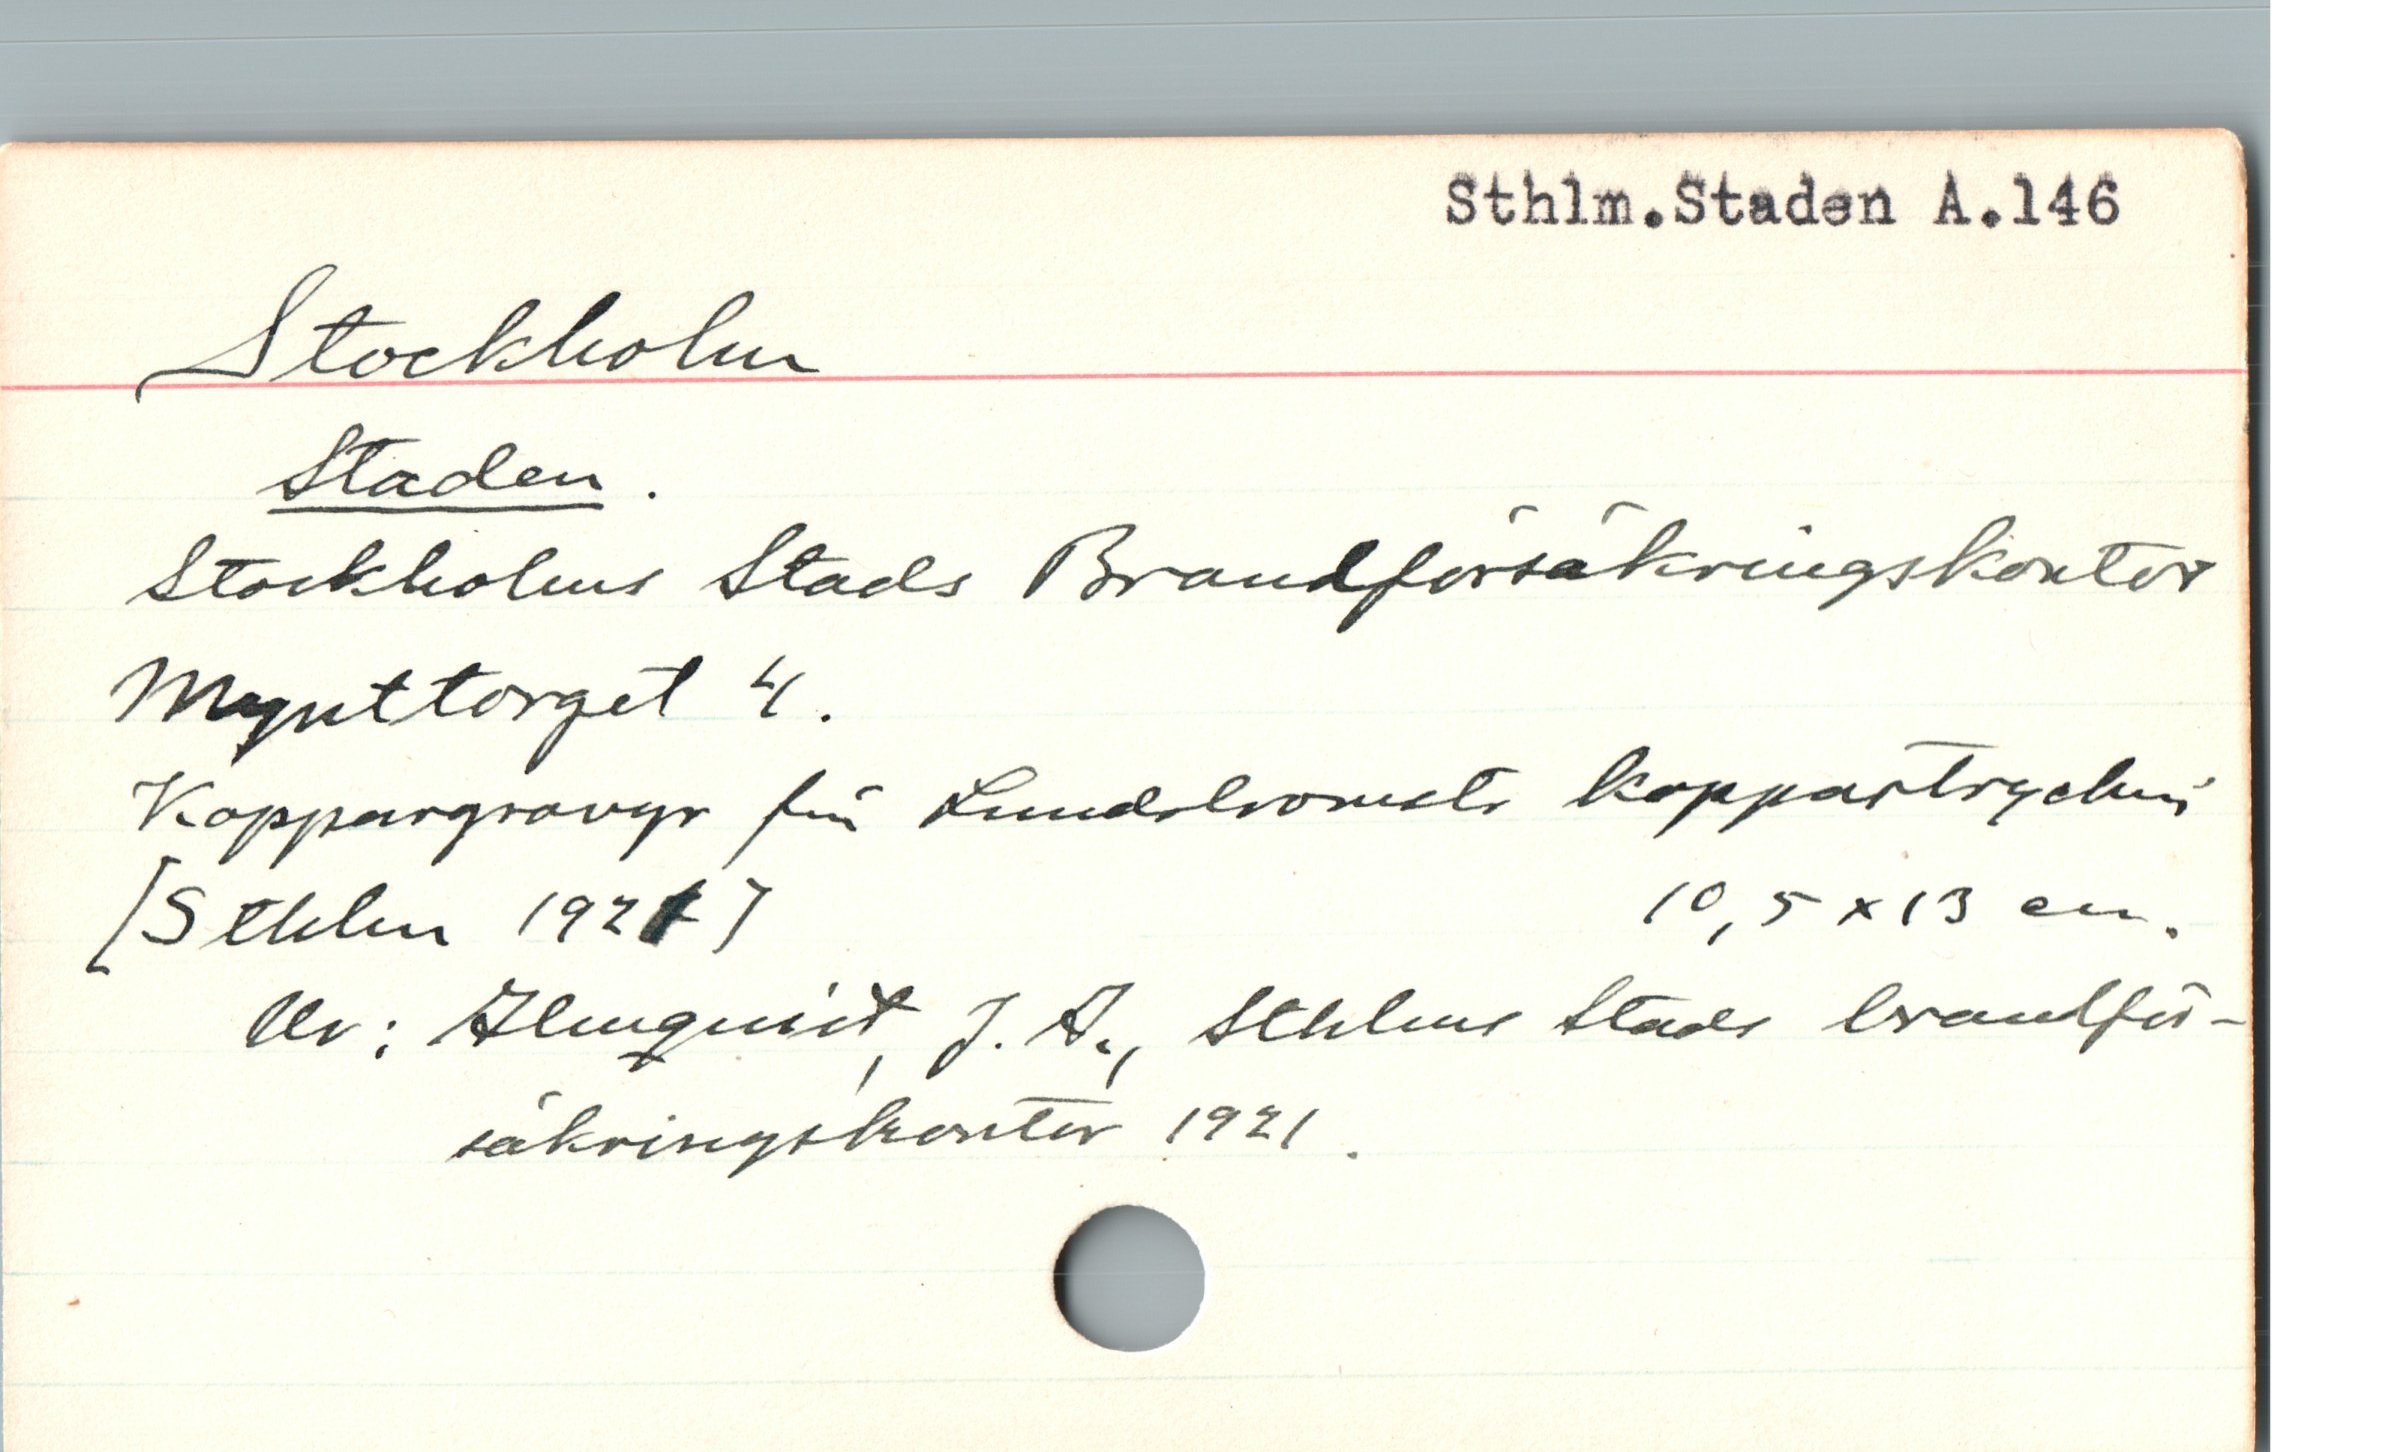 Sthlm.Staden A.146
Stockholm
Staden.
Stockholms Stads Brandförsäkringskontor
Mynttorget 4.
Koppargravyr från Lundströmsts koppartryckeri
[Sthlm 1921]
10,5 x 13 cm.
Ur: Almquist, J. A., Sthlms Stads brandför-
säkringskontor 1921.